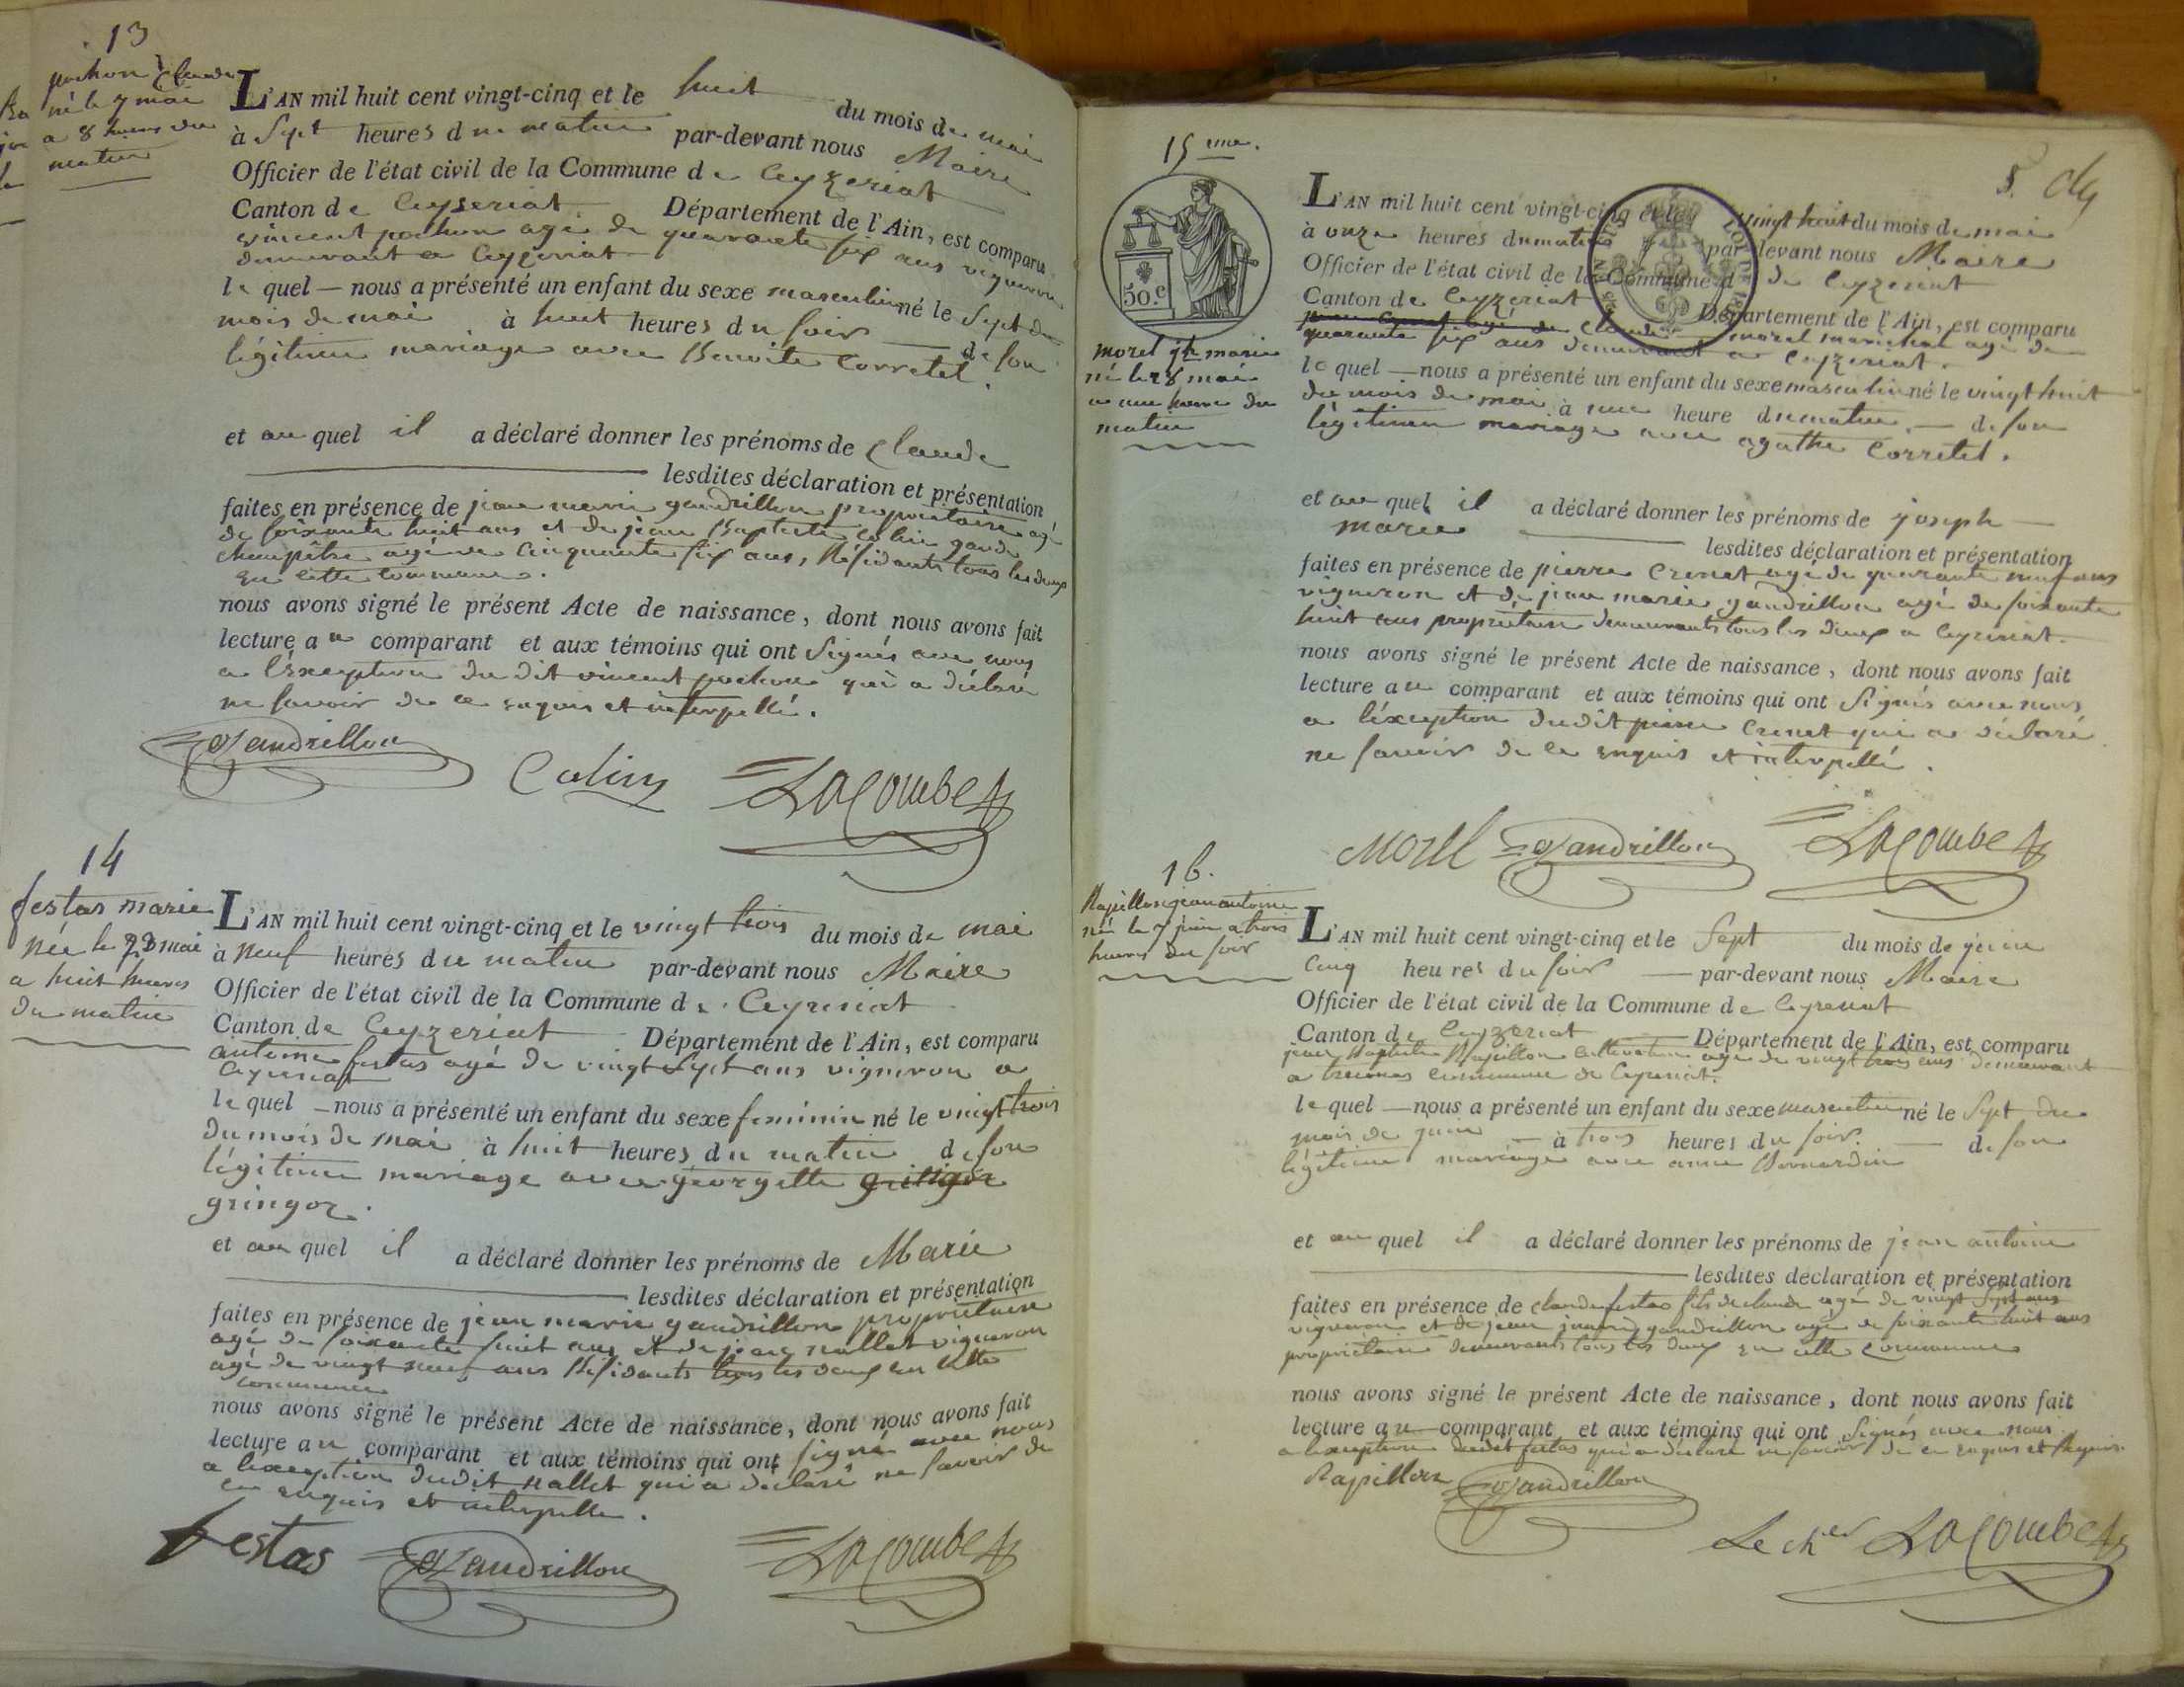 13
pochon Claude
né le 7 mai
a 8 heures du
matin
L'AN mil huit cent vingt-cinq et le huit du mois de mai
à Sept heures du matin par-devant nous Maire
Officier de l'état civil de la Commune de Ceyzeriat
Canton de Ceyseriat Département de l'Ain, est comparu
vincent pochon agé de quarante six ans vigneron
demeurant a Ceyzeriat
le quel — nous a présenté un enfant du sexe masculin né le Sept du
mois de mai à huit heures du soir de son
légitime mariage avec Benoite Corretel.
et au quel il a déclaré donner les prénoms de Claude
lesdites déclaration et présentation
faites en présence de jean marie gandrillon propriétaire agé
de soixante huit ans et de jean Baptiste Colin garde
champêtre agé de cinquante six ans, Résidants tous les deux
en cette commune.
nous avons signé le présent Acte de naissance, dont nous avons fait
lecture au comparant et aux témoins qui ont Signés avec nous
a l'exception du dit vincent pochon qui a déclaré
ne savoir de ce enquis et interpellé.
Gandrillon Colin LACombe
14
festas marie
née le 23 mai
a huit heures
du matin
L'AN mil huit cent vingt-cinq et le vingt trois du mois de mai
à Neuf heures du matin par-devant nous Maire
Officier de l'état civil de la Commune de Ceyzeriat
Canton de Ceyzeriat Département de l'Ain, est comparu
antoine festas agé de vingt Sept ans vigneron a
Ceyzeriat
le quel — nous a présenté un enfant du sexe feminin né le vingt trois
du mois de mai à huit heures du matin de son
légitime mariage avec georgette
gringoz.
et au quel il a déclaré donner les prénoms de Marie
lesdites déclaration et présentation
faites en présence de jean marie gandrillon propriétaire
agé de soixante huit ans et de jean nallet vigneron
agé de vingt neuf ans Résidants tous les deux en cette
commune
nous avons signé le présent Acte de naissance, dont nous avons fait
lecture au comparant et aux témoins qui ont signé avec nous
a l'exception dudit nallet qui a déclaré ne savoir de
ce enquis et interpellé.
festas Gandrillon LACombe
15 eme.
5.
50.c
morel jh marie
né le 28 mai
a une heure du
matin
L'AN mil huit cent vingt-cinq et le vingt huit du mois de mai
à onze heures du matin par-devant nous Maire
Officier de l'état civil de la Commune de Ceyzeriat
Canton de Ceyzeriat Département de l'Ain, est comparu
claude morel marechal agé de
quarante six ans demeurant a Ceyzeriat.
le quel — nous a présenté un enfant du sexe masculin né le vingt huit
du mois de mai à une heure du matin — de son
légitime mariage avec agathe Corretel.
et au quel il a déclaré donner les prénoms de joseph
marie lesdites déclaration et présentation
faites en présence de pierre Crenet agé de quarante neuf ans
vigneron et de jean marie gandrillon agé de soixante
huit ans propriétaire demeurants tous les deux a Ceyzeriat.
nous avons signé le présent Acte de naissance, dont nous avons fait
lecture au comparant et aux témoins qui ont Signés avec nous
a l'éxception dudit pierre Crenet qui a déclaré
ne savoir de ce enquis et interpellé.
Morel Gandrillon LACombe
16.
Rapillon jean antoine
né le 7 juin a trois
heures du soir
L'AN mil huit cent vingt-cinq et le Sept du mois de juin
Cinq heures du soir par-devant nous Maire
Officier de l'état civil de la Commune de Ceyzeriat
Canton de Ceyzeriat Département de l'Ain, est comparu
jean Baptiste Rapillon cultivateur agé de vingt trois ans demeurant
a commune de Ceyzeriat.
le quel — nous a présenté un enfant du sexe masculin né le Sept du
mois de juin — à trois heures du soir. — de son
légitime mariage avec anne Bernardin
et au quel il a déclaré donner les prénoms de jean antoine
lesdites déclaration et présentation
faites en présence de claude festas fils de claude agé de vingt Sept ans
vigneron et de jean marie gandrillon agé de soixante huit ans
propriétaire demeurants tous les deux en cette commune
nous avons signé le présent Acte de naissance, dont nous avons fait
lecture au comparant et aux témoins qui ont Signés avec nous
a l'exception dudit festas qui a déclaré ne savoir de ce enquis et Requis.
Rapillon Gandrillon
Le cher LACombe